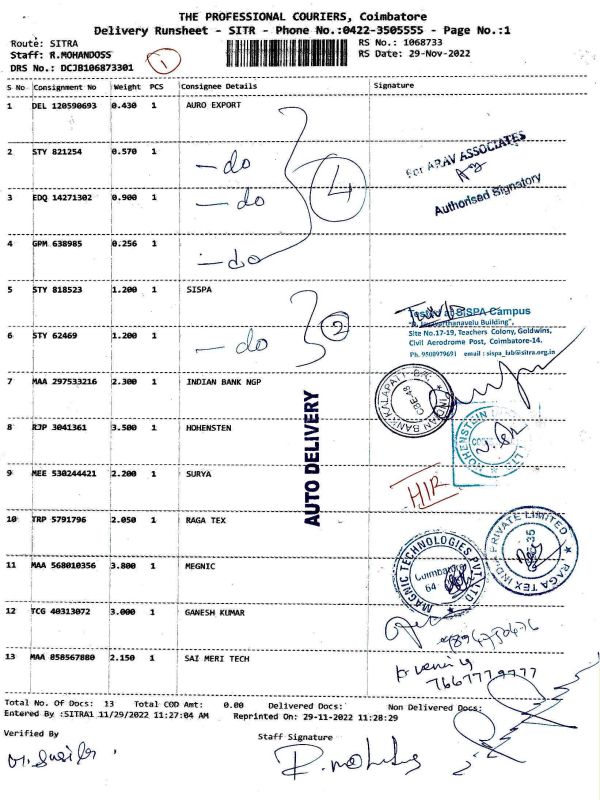 THE PROFESSIONAL COURIERS, Coimbatore
Delivery Runsheet - SITR - Phone No.:0422-3505555 - Page No.:1
Route: SITRA
RS No.: 1068733
Staff: R.MOHANDOSS
RS Date: 29-Nov-2022
DRS No.: DCJB106873301
1
S No Consignment No Weight PCS Consignee Details Signature
1 DEL 120590693 0.430 1 AURO EXPORT
2 STY 821254 0.570 1 -do
For ARAV ASSOCIATES
3 EDQ 14271302 0.900 1 -do 4
Authorised Signatory
4 GPM 638985 0.256 1 -do
5 STY 818523 1.200 1 SISPA
SISPA Campus
Building",
2
Site No.17-19, Teachers Colony, Goldwins,
6 STY 62469 1.200 1 -do
Civil Aerodrome Post, Coimbatore-14.
Ph. 9500979691 email : sispa_lab@sitra.org.in
7 MAA 297533216 2.300 1 INDIAN BANK NGP
INDIAN BANK KALAPATTI BR. CBE-48
AUTO DELIVERY
8 RJP 3041361 3.500 1 HOHENSTEN
HOHENSTEIN
9 MEE 530244421 2.200 1 SURYA
HIR
10 TRP 5791796 2.050 1 RAGA TEX
RAGA TEX INDIA PRIVATE LIMITED 35
11 MAA 568010356 3.800 1 MEGNIC
MAGNIC TECHNOLOGIES PVT LTD Coimbatore 64
12 TCG 40313072 3.000 1 GANESH KUMAR
13 MAA 858567880 2.150 1 SAI MERI TECH
7667779777
Total No. Of Docs: 13 Total COD Amt: 0.00 Delivered Docs: Non Delivered Docs:
Entered By :SITRA1 11/29/2022 11:27:04 AM Reprinted On: 29-11-2022 11:28:29
Verified By
Staff Signature